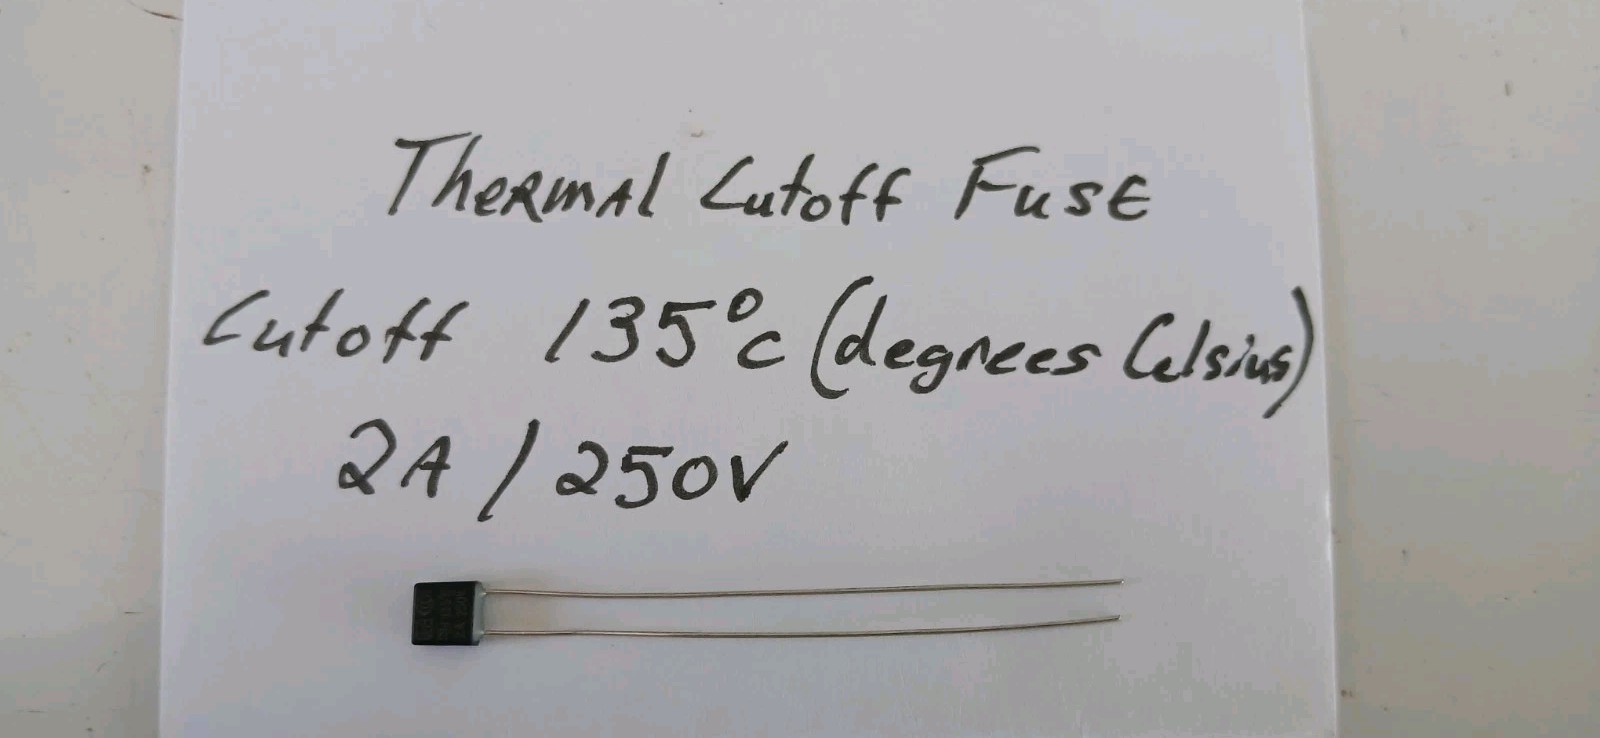 Thermal Cutoff Fuse
Cutoff 135°c (degrees Celsius)
2A / 250V